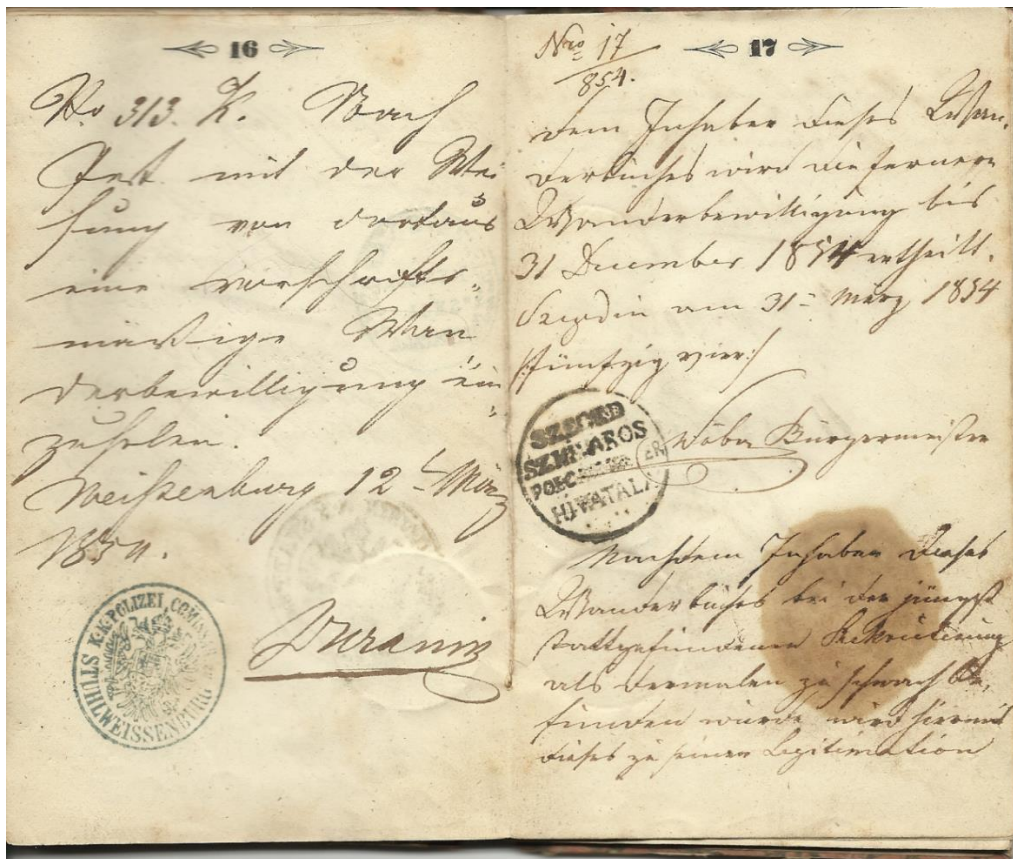 16
No 313. K. Nach
Pest mit der Wei
sung von dortaus
eine vorschrifts-
mäßige Wan
derbewilligung ein
zuholen.
Weißenburg 12t März
1854.
STUHLWEISSENBURG K.K. POLIZEI COMISS
17
Nro 17
854.
Dem Inhaber dieses Wan-
derbuches wird die fernere
Wanderbewilligung bis
31 December 1854 ertheilt.
Szegedin am 31 März 1854
/:fünfzig vier:/
SZEGED
VAROS
HIVATAL
Bürgermeister
Nachdem Inhaber dieses
Wanderbuches bei der jüngst
stattgefundenen Rekrutierung
als dermalen zu schwach be-
funden wurde wird hiemit
dieses zu seiner Legitimation